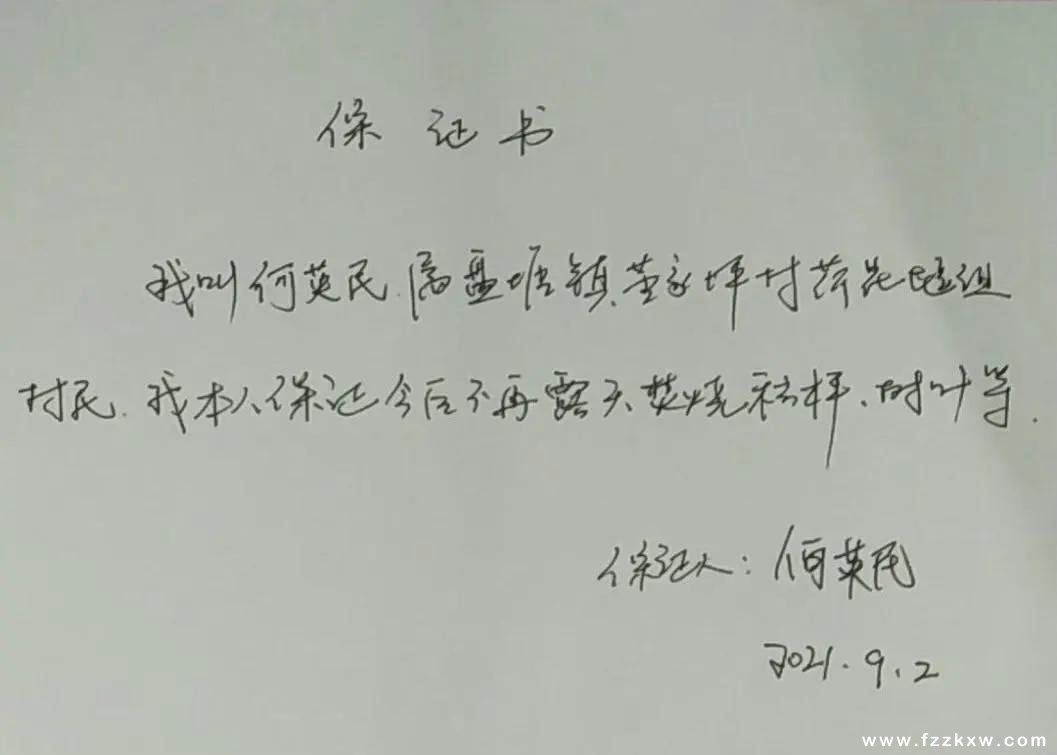 保证书
我叫何英民.属盘塘镇黄家坪村荷花组
村民.我本人保证今后不再露天焚烧秸秆、树叶等.
保证人:何英民
2021.9.2
www.fzzkxw.com